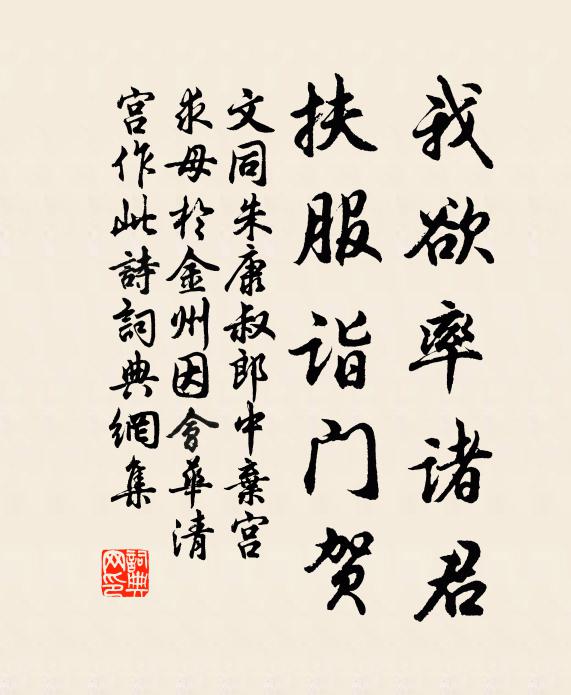 我欲率诸君
扶服诣门贺
文同朱康叔郎中棄宫
求母於金州因會華清
宫作此詩詞典網集
詞典網印